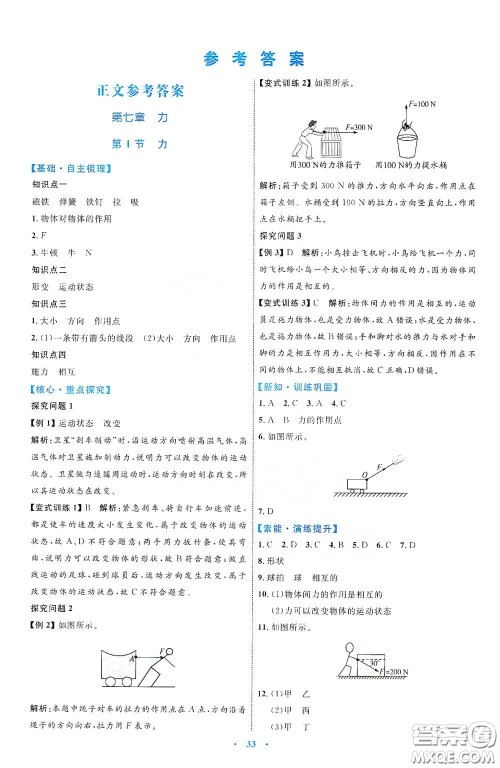 参考答案
正文参考答案
第七章 力
第1节 力
【基础·自主梳理】
知识点一
磁铁 弹簧 铁钉 拉 吸
1. 物体对物体的作用
2. F
3. 牛顿 牛 N
知识点二
形变 运动状态
知识点三
1. 大小 方向 作用点
2. (1)一条带有箭头的线段 (2)大小 方向 作用点
知识点四
施力 相互
【核心·重点探究】
探究问题1
【例1】运动状态 改变
解析:卫星“刹车制动”时,沿运动方向喷射高温气体,高
温气体对卫星施加了力,说明力可以改变物体的运动
状态。卫星绕月做圆周运动时,运动方向时刻在改变,所
以其运动状态在改变。
【变式训练1】B 解析:紧急刹车、骑自行车加速前进,
都是使车的速度大小发生变化,属于改变物体的运动
状态,A、D不符合题意;两手用力扳竹条,使其弯
曲,说明力可以改变物体的形状,故B符合题意;做曲
线运动的足球,碰到球员又弹出去,运动方向和速度大
小都发生改变,属于力改变物体的运动状态,故C不
符合题意。
探究问题2
【例2】如图所示。
A F
解析:本题中绳子对车的拉力的作用点在A点,方向沿着
绳子的方向向右,拉力用F表示。
【变式训练2】如图所示。
F=300 N
F=100 N
用300 N的力推箱子 用100 N的力提水桶
解析:箱子受到300 N的推力,方向水平向右,作用点
在箱子左侧。水桶受到100 N的拉力,方向竖直向上,作
用点在水桶把手上。
探究问题3
【例3】D 解析:小鸟撞击飞机时,小鸟给飞机一个力,同
时飞机给小鸟一个大小相等、方向相反的力,因为物体间
力的作用是相互的。
【变式训练3】C 解析:物体间力的作用是相互的,运动
员是施力物体,也是受力物体,故A错误;水是施力物
体,也是受力物体,故B错误;手和脚对水的推力与水
对手和脚的推力大小相等,故C正确,D错误;方向
相反,作用在不同物体上,不能相互抵消,故D错误。
【新知·训练巩固】
1. A 2. C 3. D 4. C
5. A B 力的作用点
6. 如图所示。
O F
7. D
【素能·演练提升】
1. C 2. C 3. B 4. D 5. D 6. B 7. D
8. 形状
9. 球拍 球 相互的
10. (1)物体间力的作用是相互的
(2)力可以改变物体的运动状态
11. 如图所示。
30°
F=200 N
12. (1)甲 乙
(2)甲 丙
(3)甲 丁
33
答案圈
MXEQ.COM